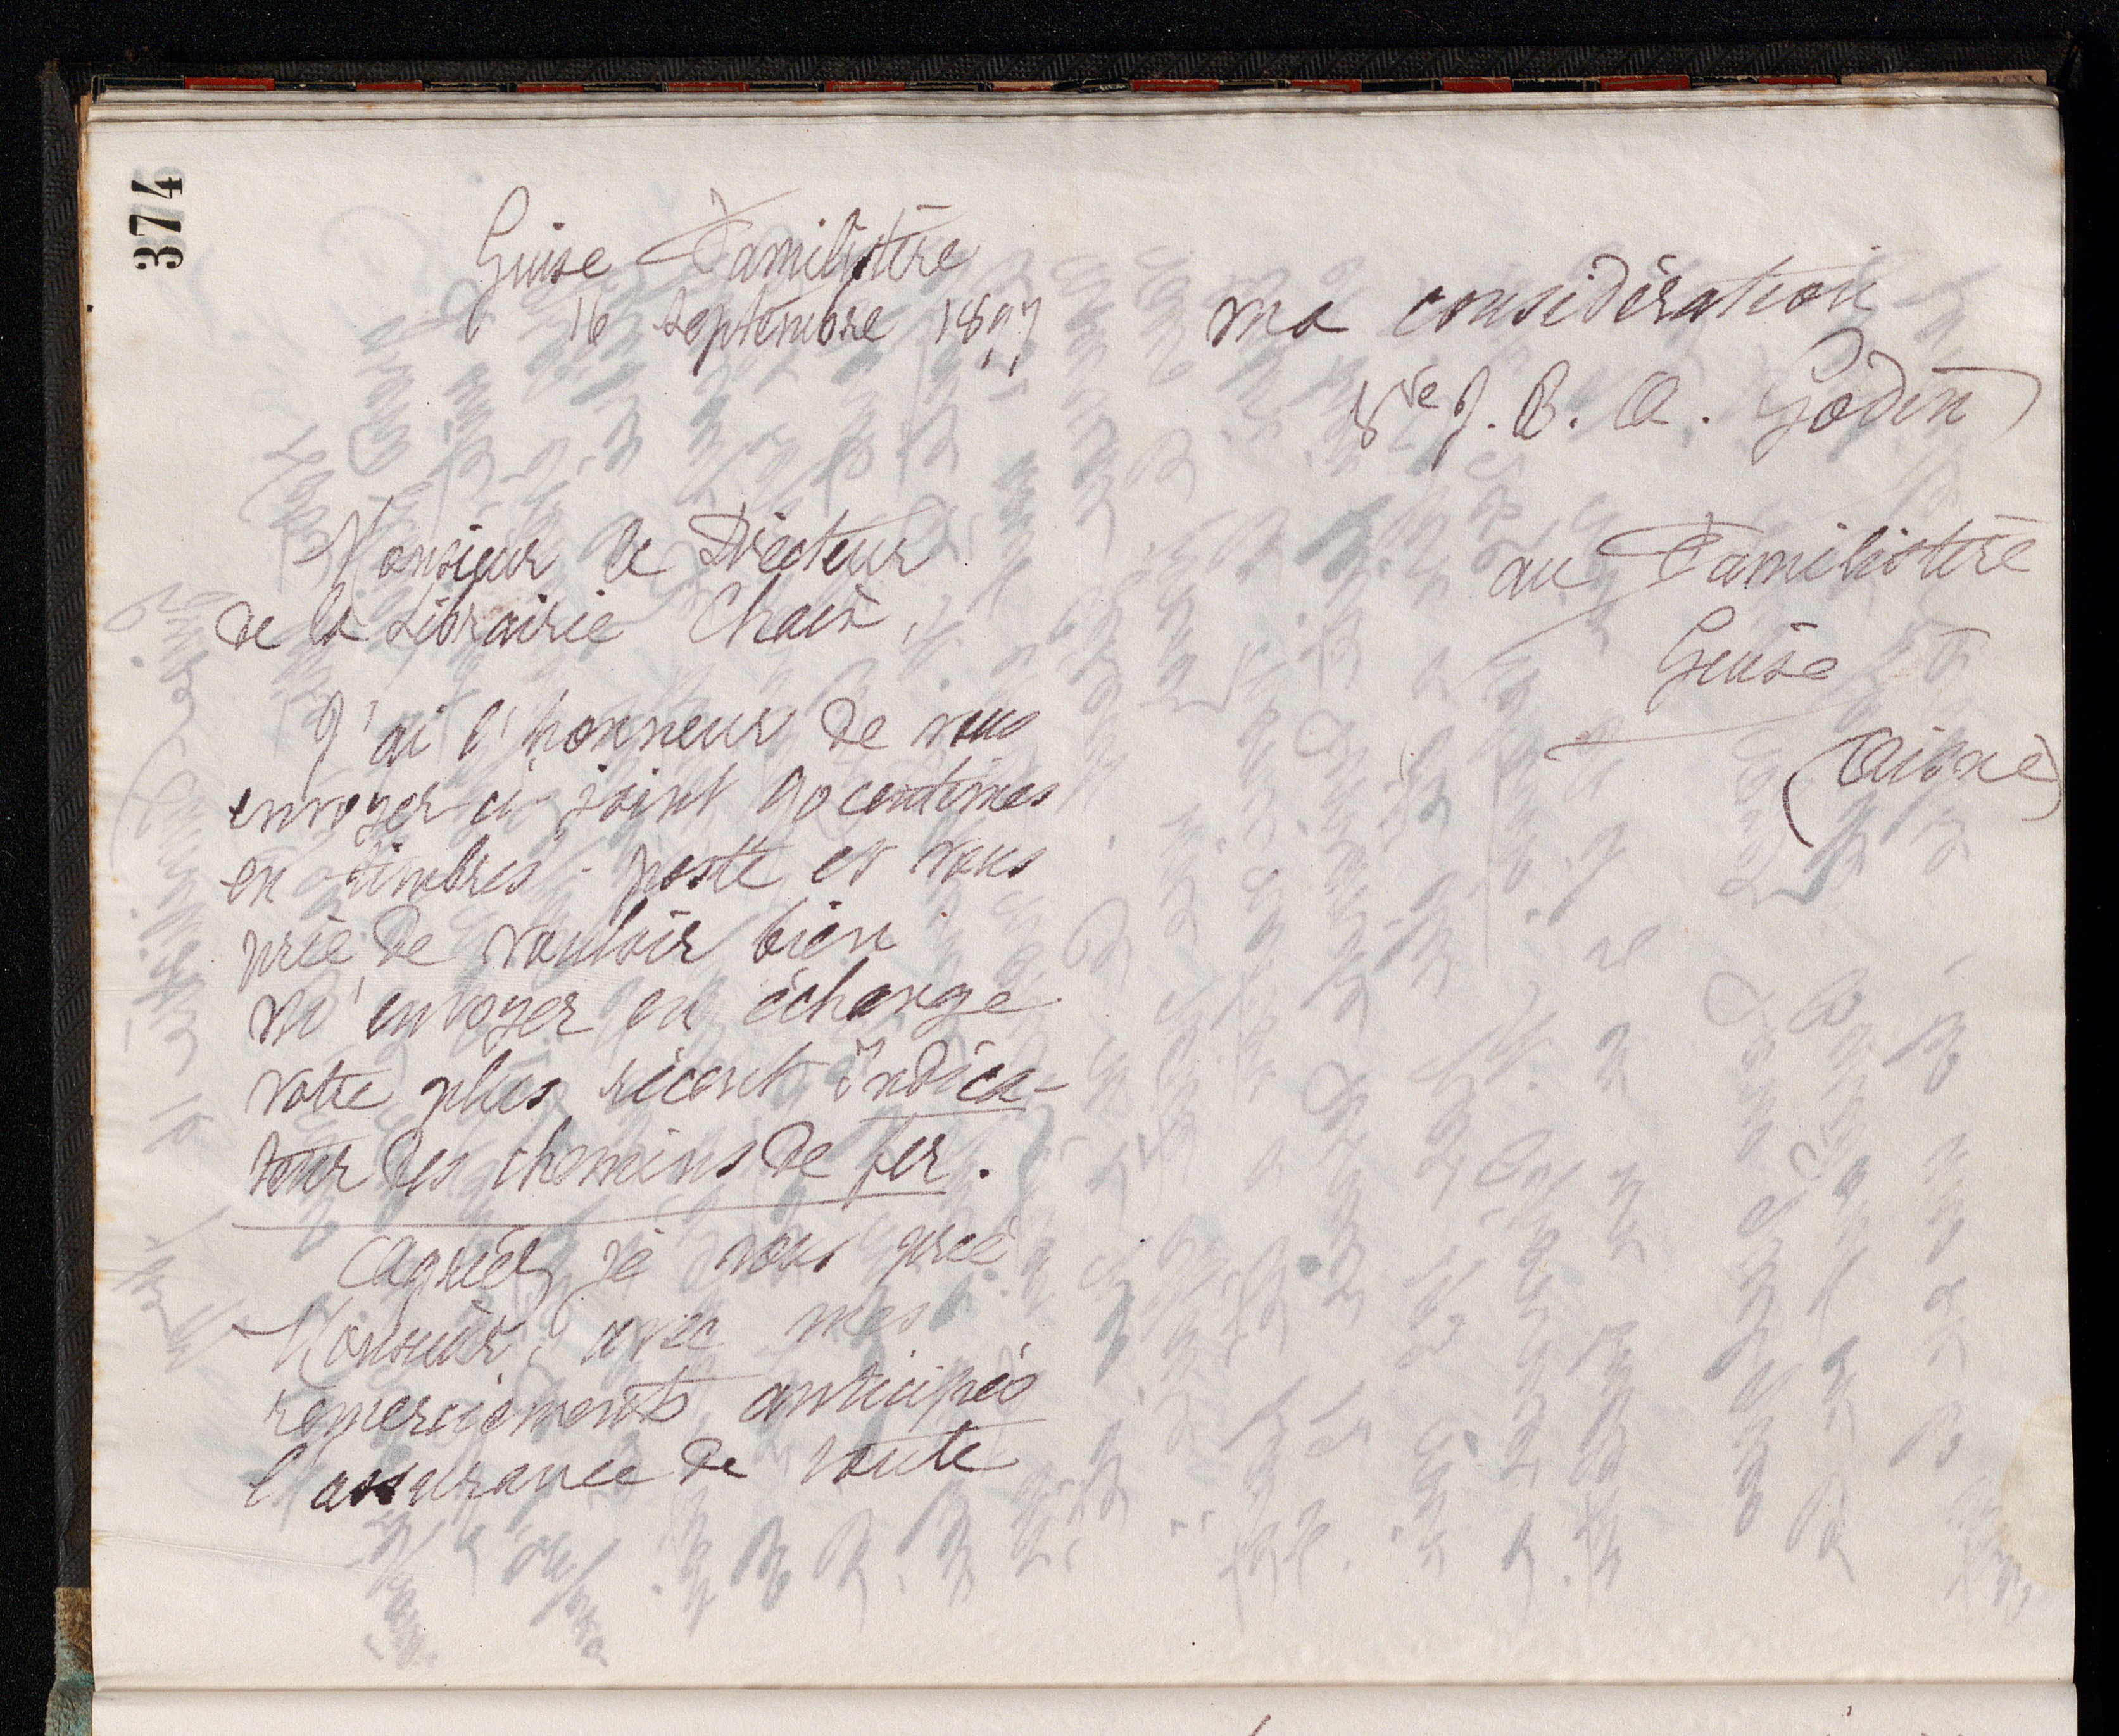 374
Guise Familistère
16 septembre 1897
Monsieur le Directeur
de la Librairie Chaix,
J'ai l'honneur de vous
envoyer ci-joint 90 centimes
en timbres-poste et vous
prie de vouloir bien
m'envoyer en échange
votre plus récent Indica-
teur des chemins de fer.
Agréez, je vous prie
Monsieur, avec mes
remerciements anticipés
l'assurance de toute
ma considération
Vve J. B. A. Godin
au Familistère
Guise
(Aisne)